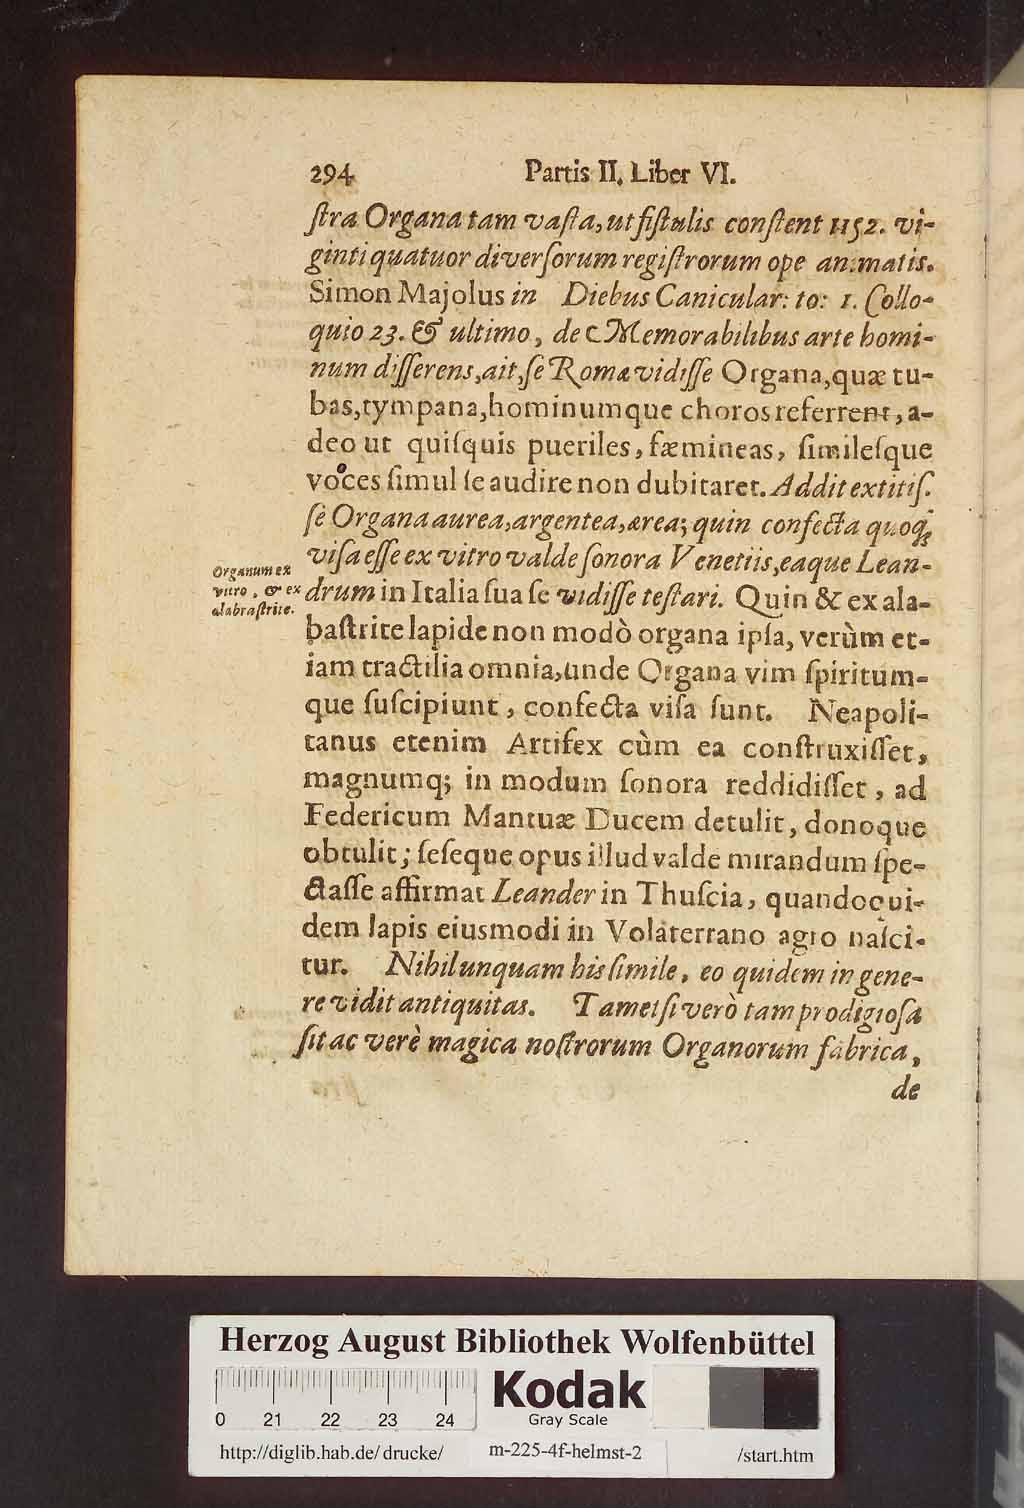 294 Partis II. Liber VI.
ſtra Organa tam vaſta, ut fiſtulis conſtent 1152. vi-
ginti quatuor diverſorum regiſtrorum ope animatis.
Simon Majolus in Diebus Canicular: to: 1. Collo-
quio 23. & ultimo, de Memorabilibus arte homi-
num diſſerens, ait, ſe Romæ vidiſſe Organa, quæ tu-
bas, tympana, hominumque choros referrent, a-
deo ut quiſquis pueriles, fæmineas, ſimileſque
voces ſimul ſe audire non dubitaret. Addit extitiſ-
ſè Organa aurea, argentea, ærea; quin confecta quoq;
viſa eſſe ex vitro valde ſonora Venetiis, eaque Lean-
Organum ex
vitro, & ex
alabraſtrite.
drum in Italia ſua ſe vidiſſe teſtari. Quin & ex ala-
baſtrite lapide non modò organa ipſa, verùm et-
iam tractilia omnia, unde Organa vim ſpiritum-
que ſuſcipiunt, confecta viſa ſunt. Neapoli-
tanus etenim Artifex cùm ea conſtruxiſſet,
magnumq; in modum ſonora reddidiſſet, ad
Federicum Mantuæ Ducem detulit, donoque
obtulit; ſeſeque opus illud valde mirandum ſpe-
ctaſſe affirmat Leander in Thuſcia, quandoqui-
dem lapis eiusmodi in Volaterrano agro naſci-
tur. Nihil unquam his ſimile, eo quidem in gene-
re vidit antiquitas. Tametſi verò tam prodigioſa
ſit ac verè magica noſtrorum Organorum fabrica,
de
Herzog August Bibliothek Wolfenbüttel
Kodak
Gray Scale
0 21 22 23 24
http://diglib.hab.de/drucke/ m-225-4f-helmst-2 /start.htm